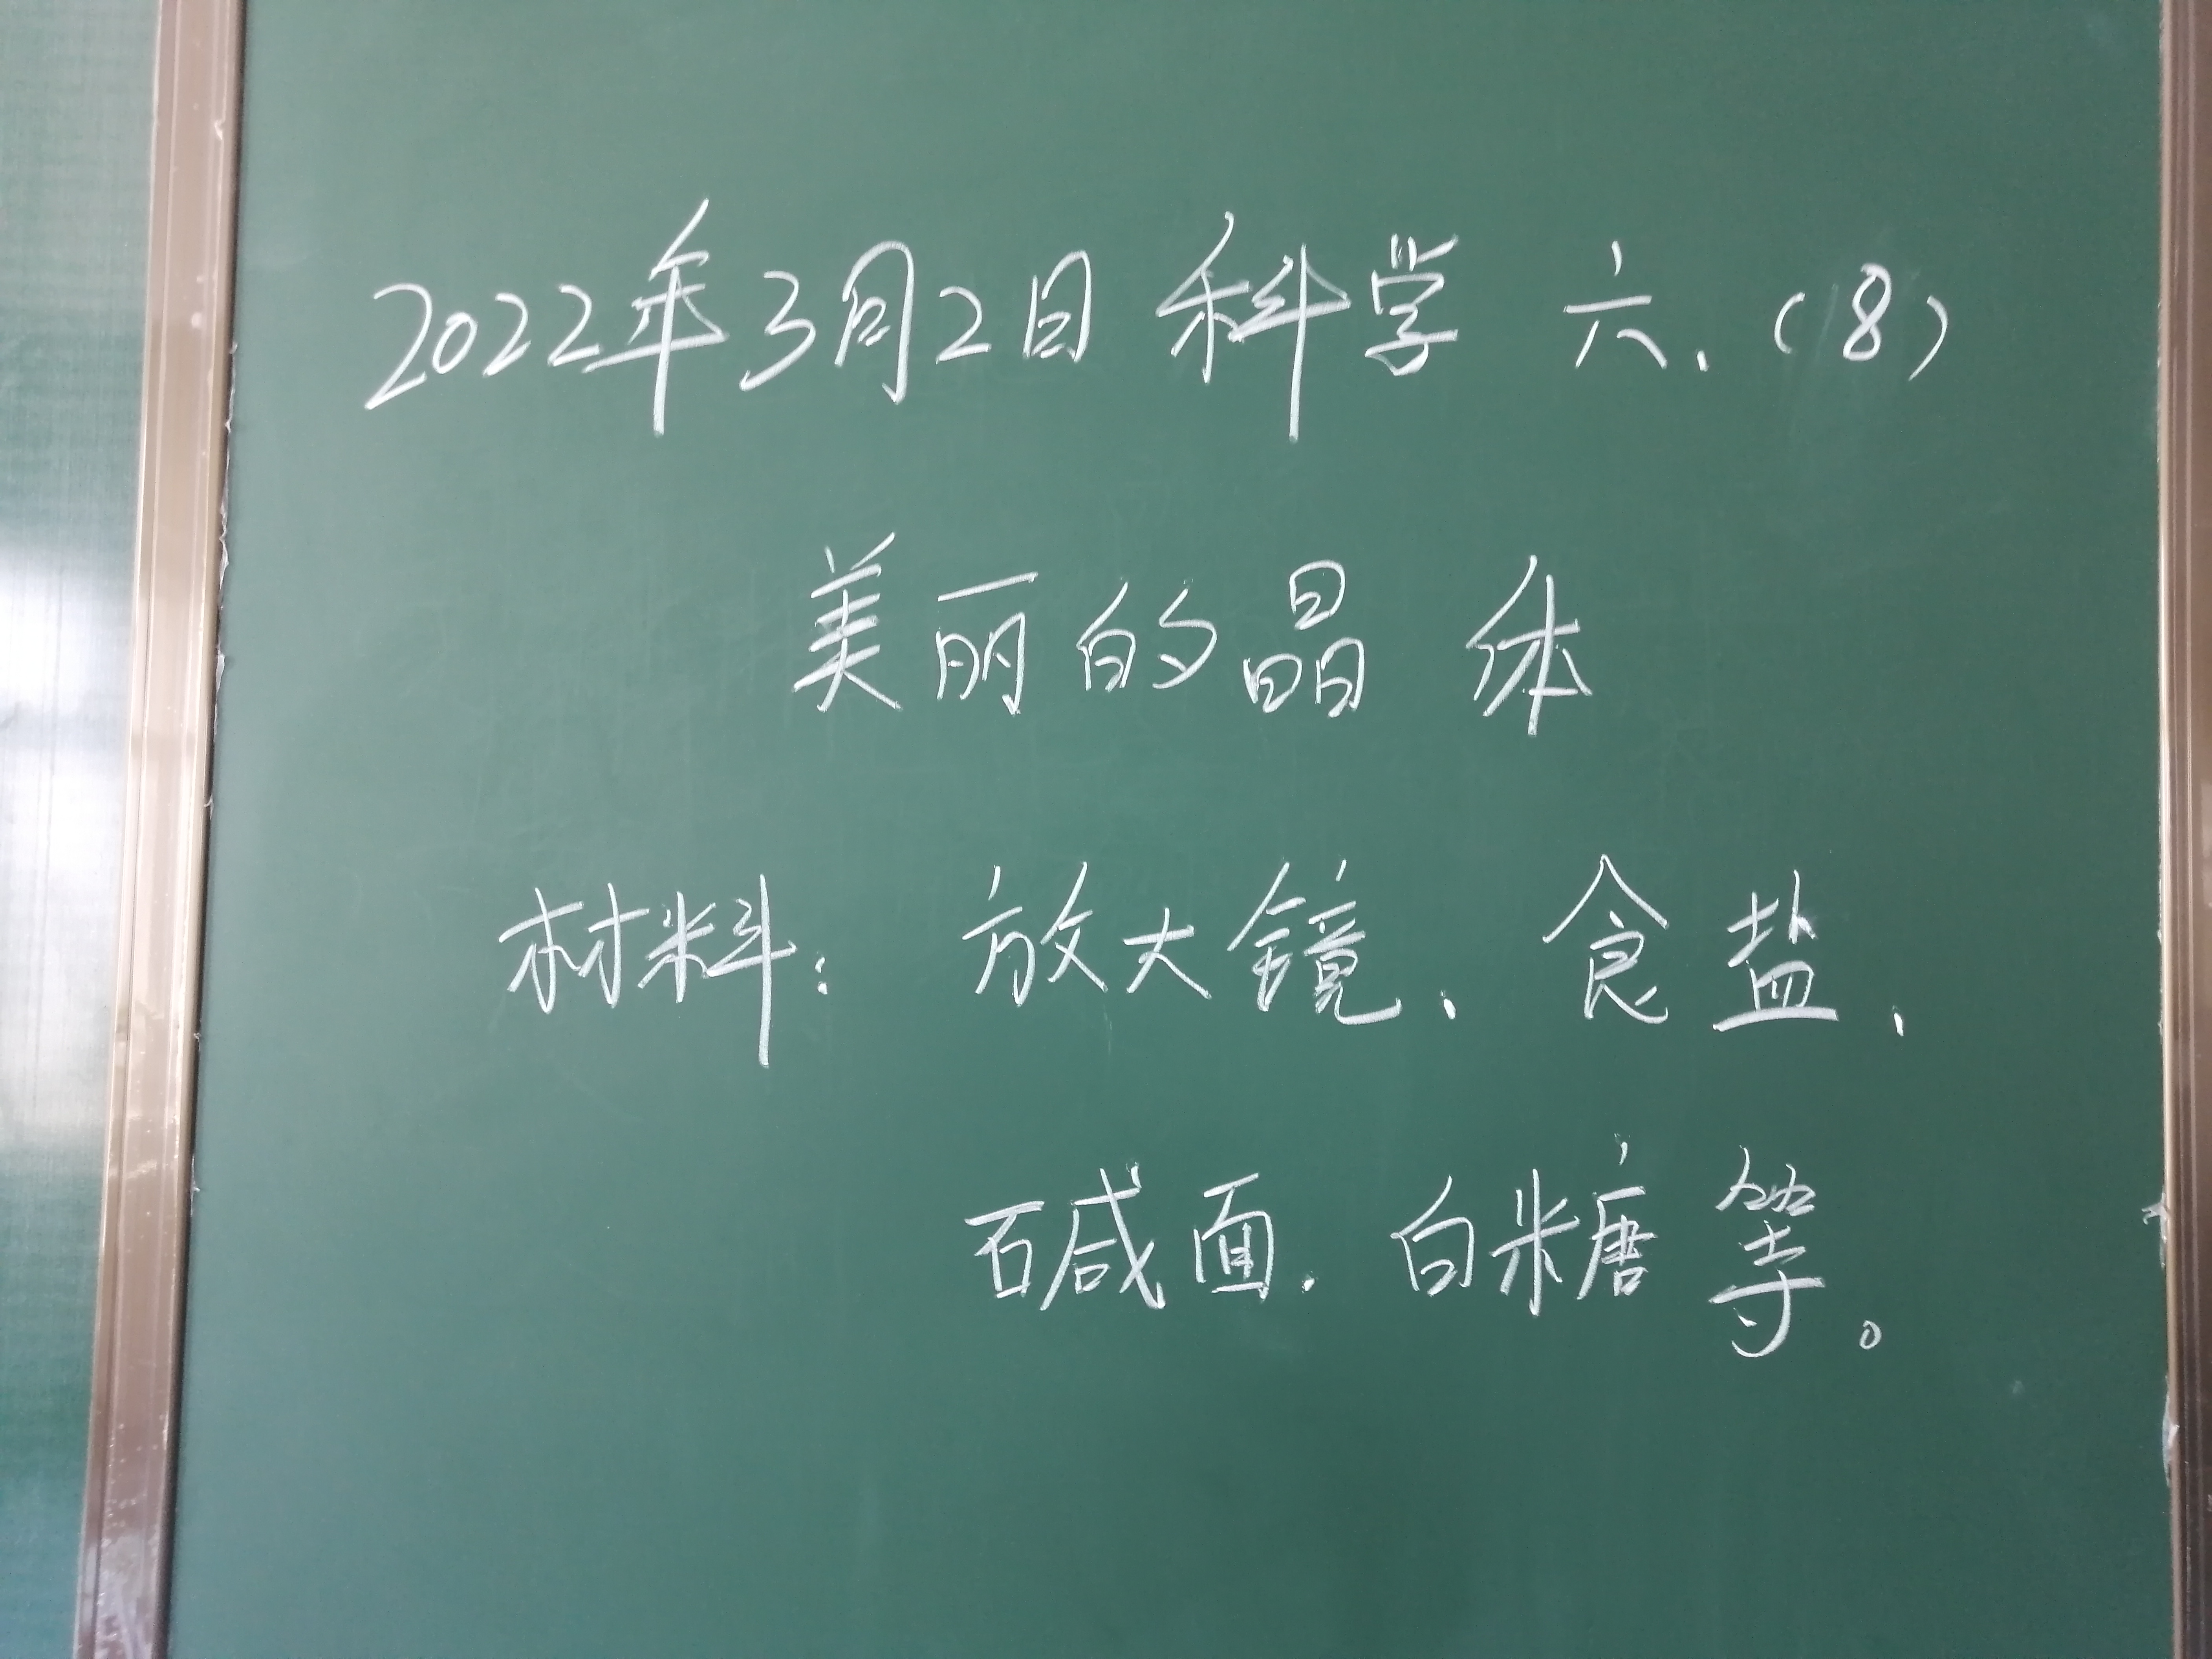 2022年3月2日 科学 六、(8)
美丽的晶体
材料：放大镜、食盐、
碱面、白糖等。